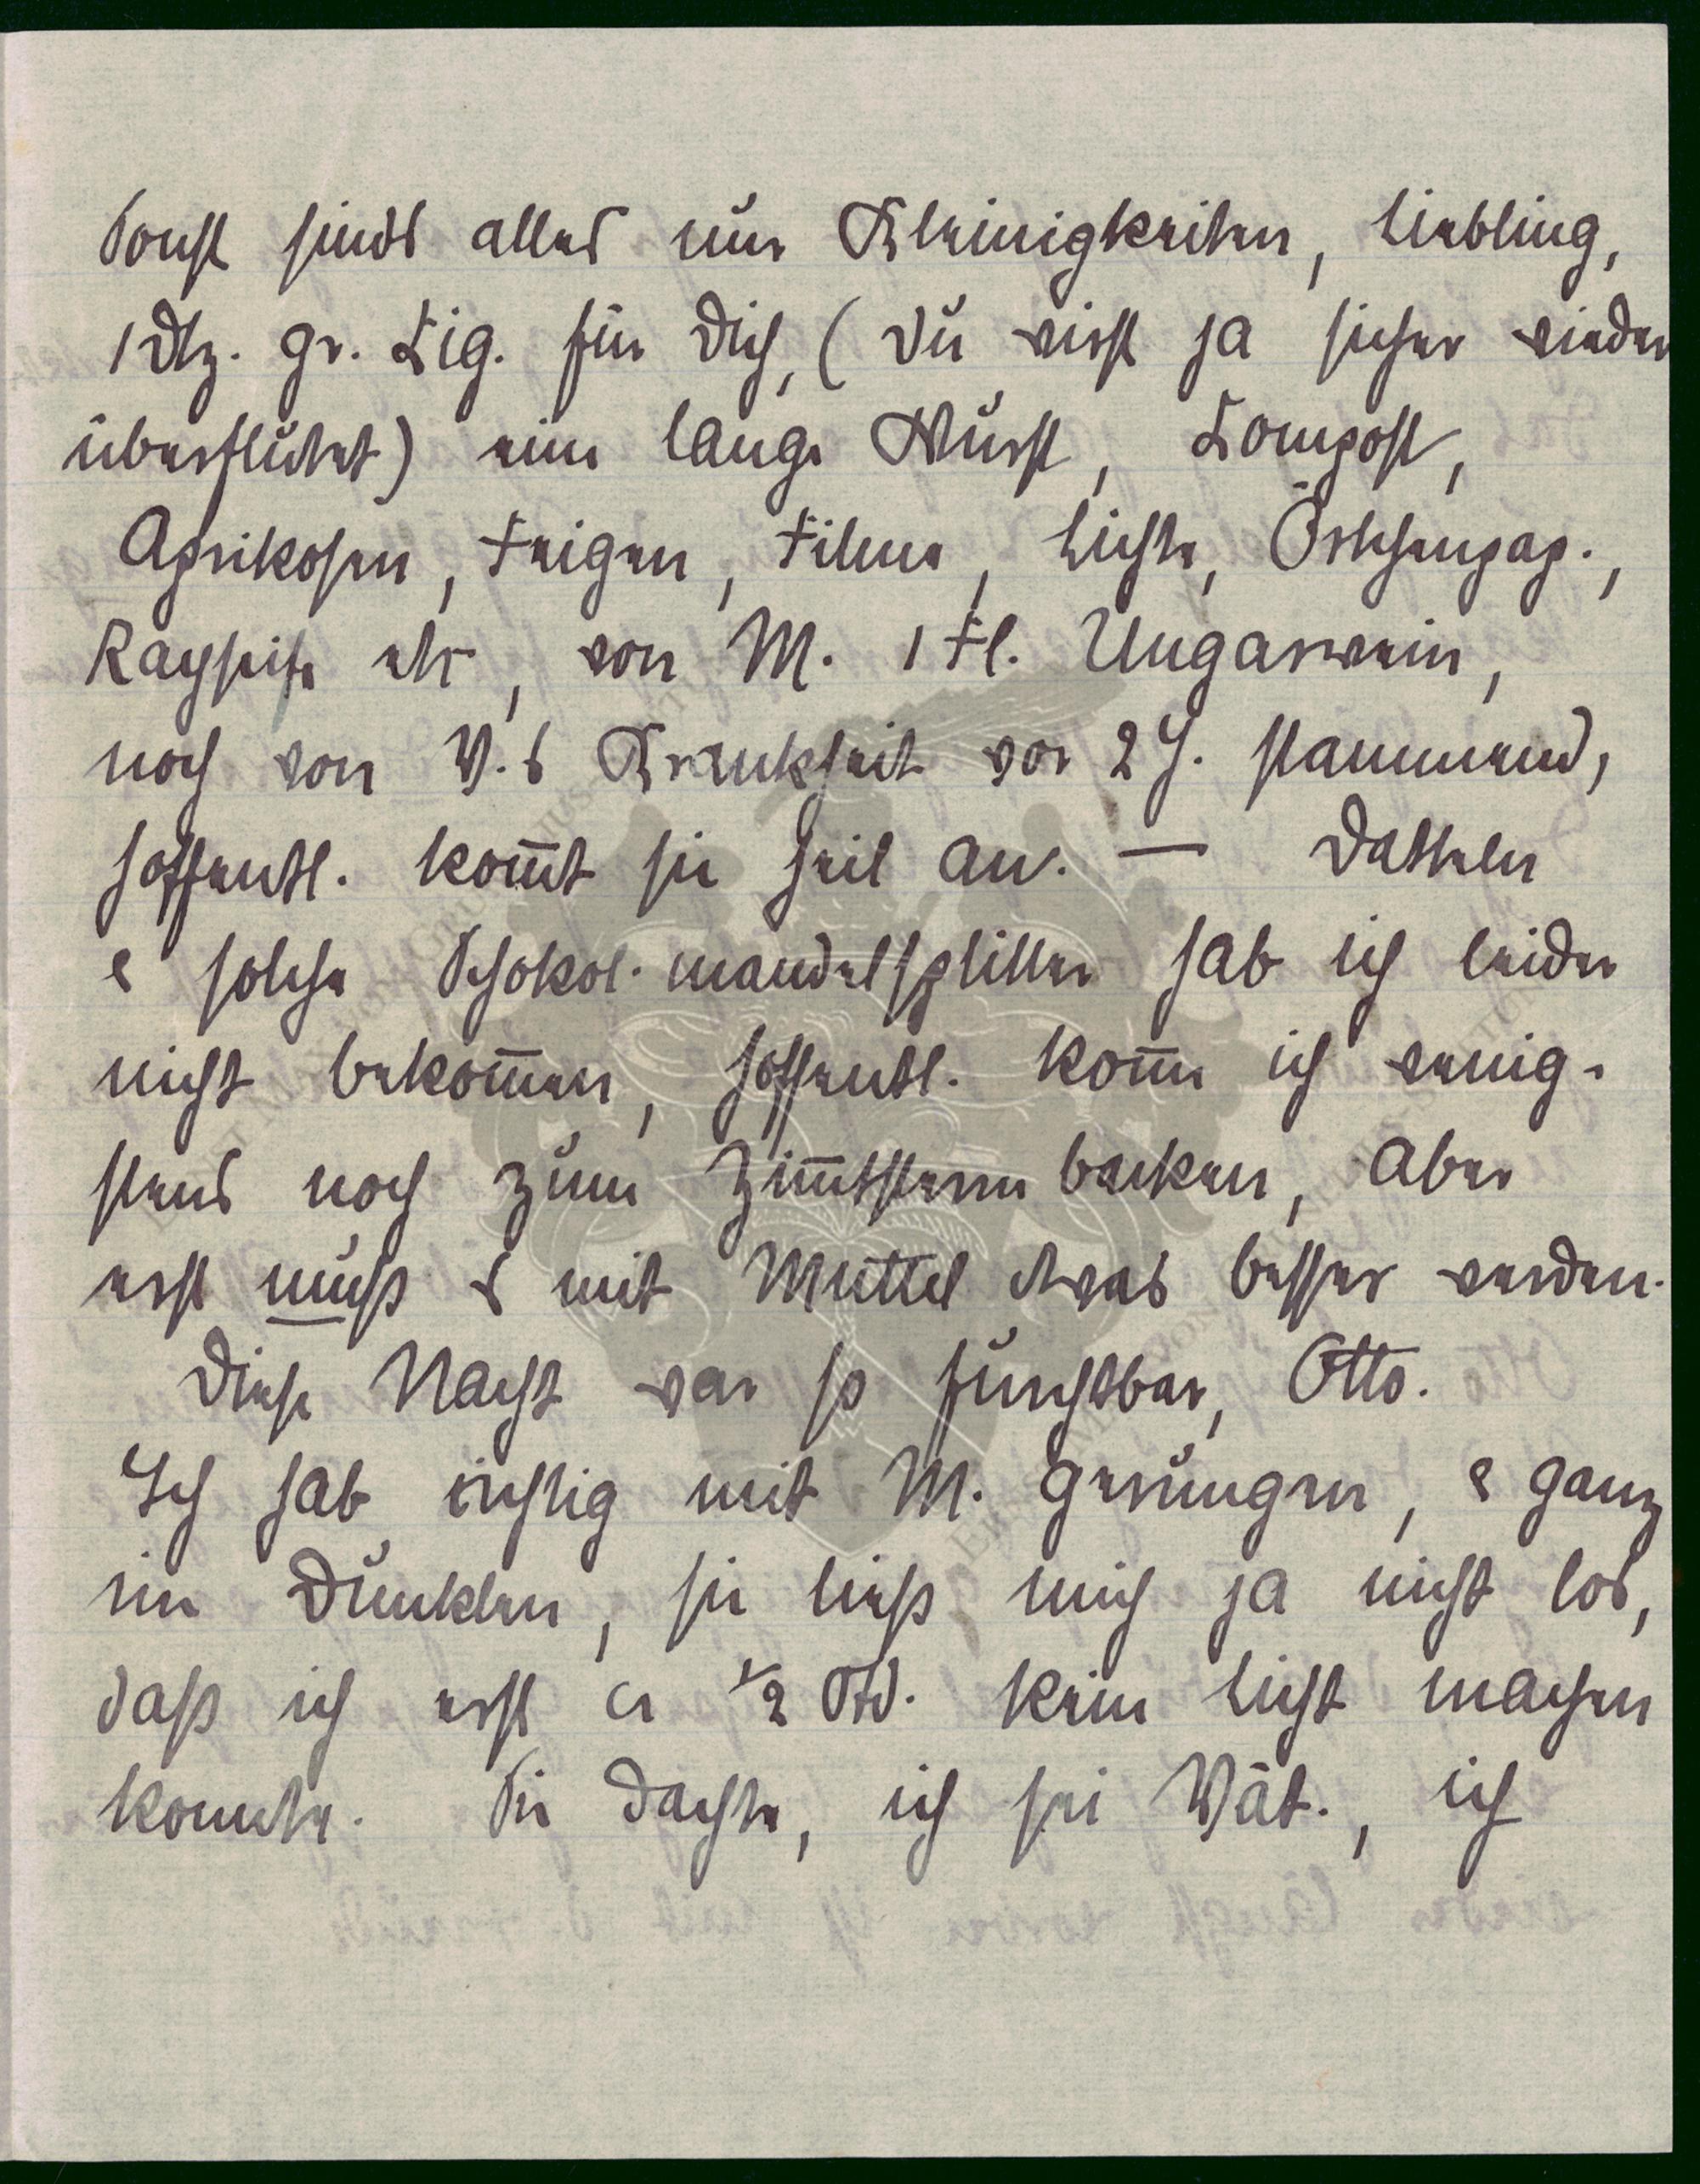 Sonst sinds alles nur Kleinigkeiten, Liebling,
1 Dtz. gr. Zig. für Dich, (Du wirst ja sicher wieder
überflutet) eine lange Wurst, Kompost,
Aprikosen, Feigen, Filme, Lichte, Ölpap.,
Rayseife etc, von M. 1 Fl. Ungarwein,
noch von V.s Krankheit vor 2 J. stammend,
hoffentl. kom̅t sie heil an. — Datteln
& solche Schokol. mandelsplitter hab ich leider
nicht bekom̅en, hoffentl. kom̅e ich wenig-
stens noch zum Zim̅tsterne backen, aber
erst muß es mit Muttel etwas besser werden.
Diese Nacht war so furchtbar, Otto.
Ich hab richtig mit M. gerungen, & ganz
im Dunklen, sie ließ mich ja nicht los,
daß ich erst ca ½ Std. kein Licht machen
konnte. Sie dachte, ich sei Vat., ich